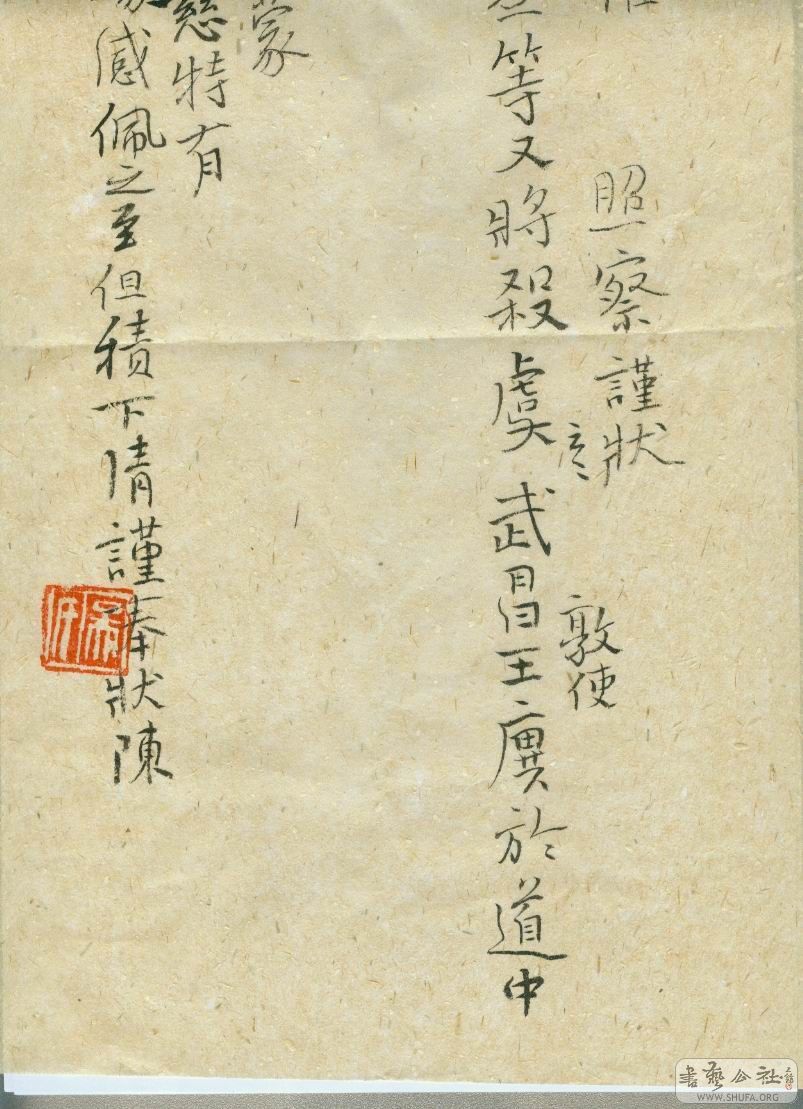 照察謹狀
敦使
等又將殺虞武昌王廙於道中
蒙
慈特有
感佩之至但積下情謹奉狀陳
書藝公社
WWW.SHUFA.ORG